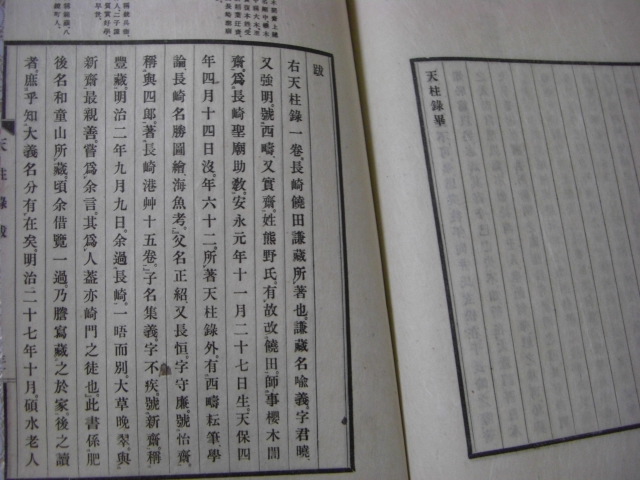 天柱錄畢
跋
右天柱錄一卷。長崎饒田謙藏所著也。謙藏名喩義字君曉。
又强明。號西疇。又實齋。姓熊野氏。有故改饒田。師事櫻木誾
齋。爲長崎聖廟助敎。安永元年十一月二十七日生。天保四
年四月十四日沒。年六十二。所著天柱錄外。有西疇耘筆。學
論長崎名勝圖繪。海魚考。父名正紹。又長恒。字守廉。號怡齋。
稱與四郎。著長崎港艸十五卷。子名集義。字不疾。號新齋。稱
豐藏。明治二年九月九日。余過長崎。一晤而別。大草晚翠。與
新齋最親善。嘗爲余言。其爲人。葢亦崎門之徒也。此書係肥
後名和童山所藏。頃余借覽一過。乃謄寫藏之於家。後之讀
者。庶乎知大義名分有在矣。明治二十七年十月。碩水老人